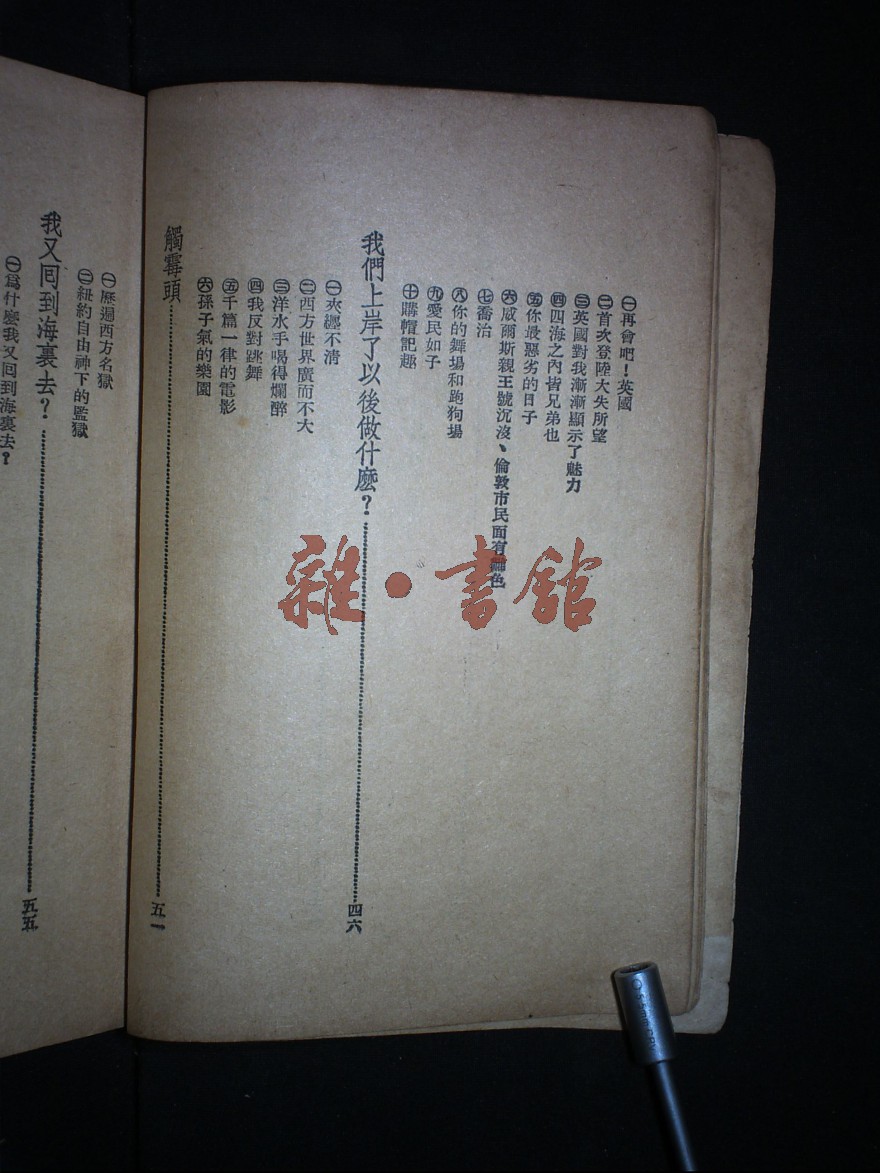 ㊀再會吧！英國
㊁首次登陸大失所望
㊂英國對我漸漸顯示了魅力
㊃四海之內皆兄弟也
㊄你最惡劣的日子
㊅威爾斯親王號沉沒、倫敦市民面有色
㊆喬治
㊇你的舞場和跑狗場
㊈愛民如子
㊉購帽記趣
我們上岸了以後做什麼？四六
㊀夾纏不清
㊁西方世界廣而不大
㊂洋水手喝得爛醉
㊃我反對跳舞
㊄千篇一律的電影
㊅孫子氣的樂園
觸霉頭五一
㊀歷遍西方名獄
㊁紐約自由神下的監獄
我又囘到海裏去？五五
㊀爲什麼我又囘到海裏去？
雜·書館